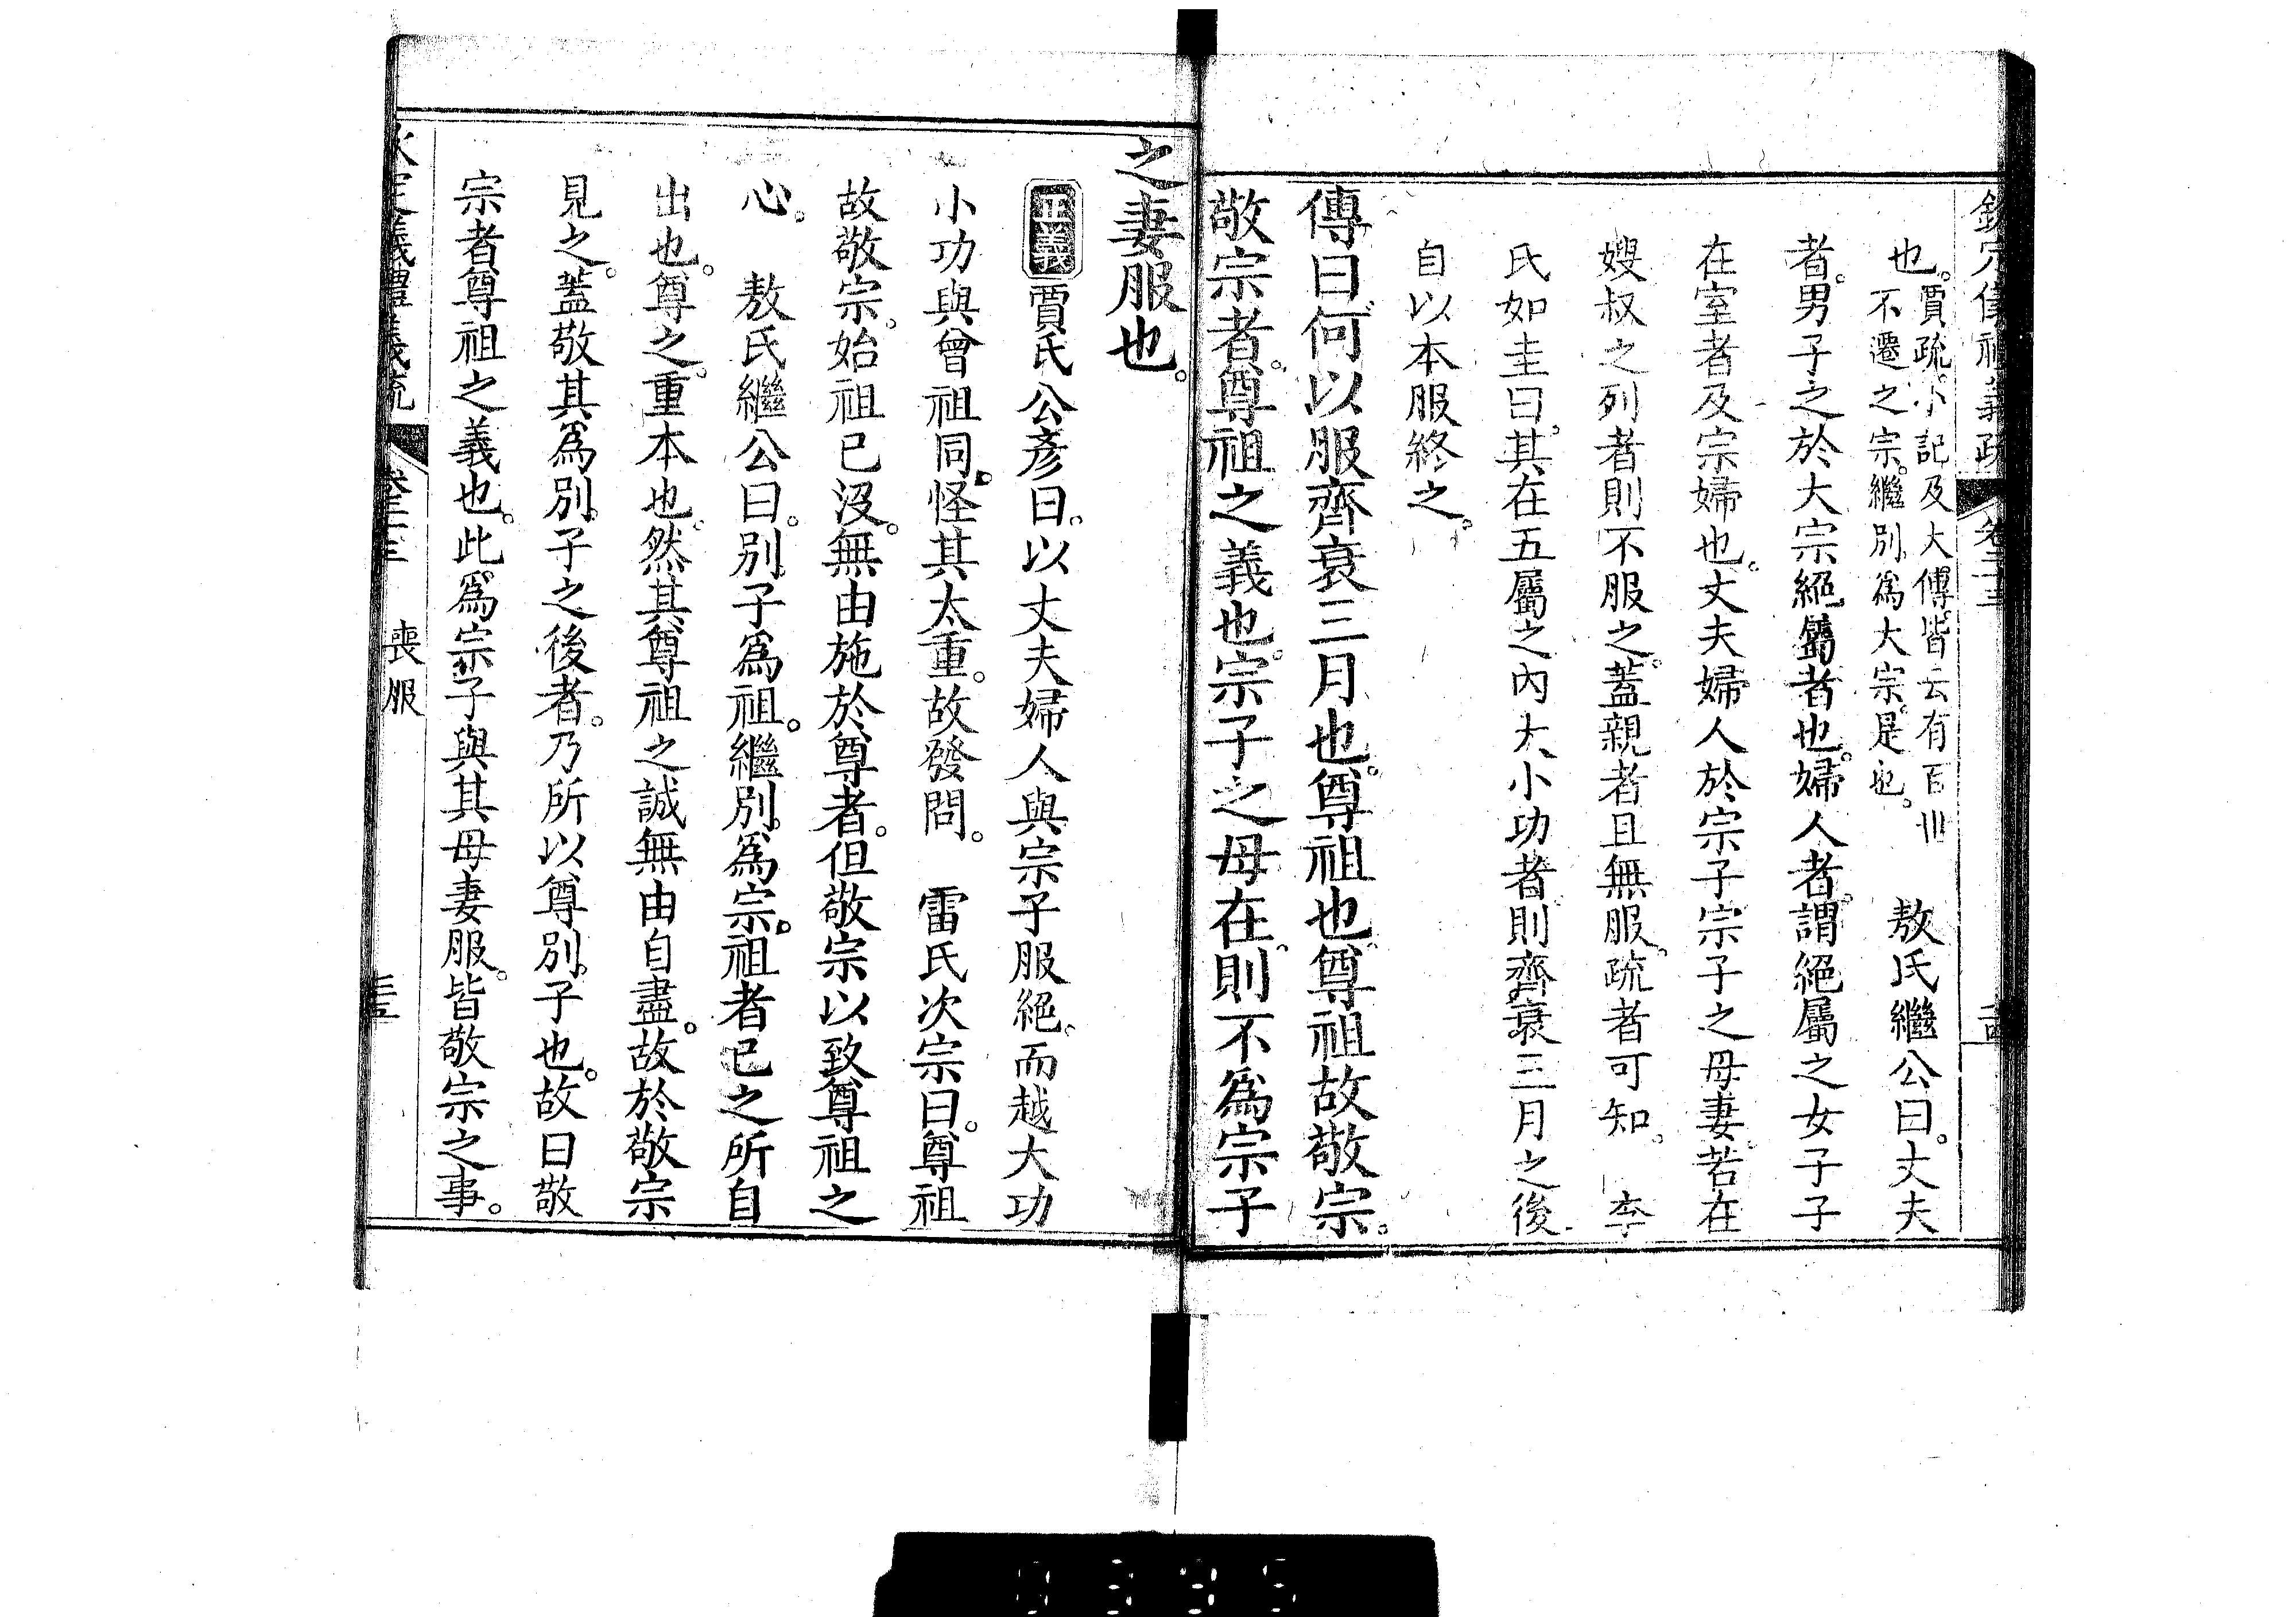 欽定儀禮義疏 卷二十三
也。賈疏。小記及大傳。皆云有百世
不遷之宗。繼別爲大宗。是也。 敖氏繼公曰。丈夫
者。男子之於大宗絕屬者也。婦人者。謂絕屬之女子子
在室者及宗婦也。丈夫婦人於宗子宗子之母妻。若在
嫂叔之列者則不服之。蓋親者且無服。疏者可知。 李
氏如圭曰。其在五屬之內大小功者。則齊衰三月之後
自以本服終之。
傳曰。何以服齊衰三月也。尊祖也。尊祖故敬宗。
敬宗者。尊祖之義也。宗子之母在。則不爲宗子
之妻服也。
正義 賈氏公彥曰。以丈夫婦人與宗子服絕。而越大功
小功與曾祖同。怪其太重。故發問。 雷氏次宗曰。尊祖
故敬宗。始祖已沒。無由施於尊者。但敬宗以致尊祖之
心。 敖氏繼公曰。別子爲祖。繼別爲宗。祖者已之所自
出也。尊之。重本也。然其尊祖之誠無由自盡。故於敬宗
見之。蓋敬其爲別子之後者。乃所以尊別子也。故曰敬
宗者尊祖之義也。此爲宗子與其母妻服。皆敬宗之事。
欽定儀禮義疏 卷二十三 喪服